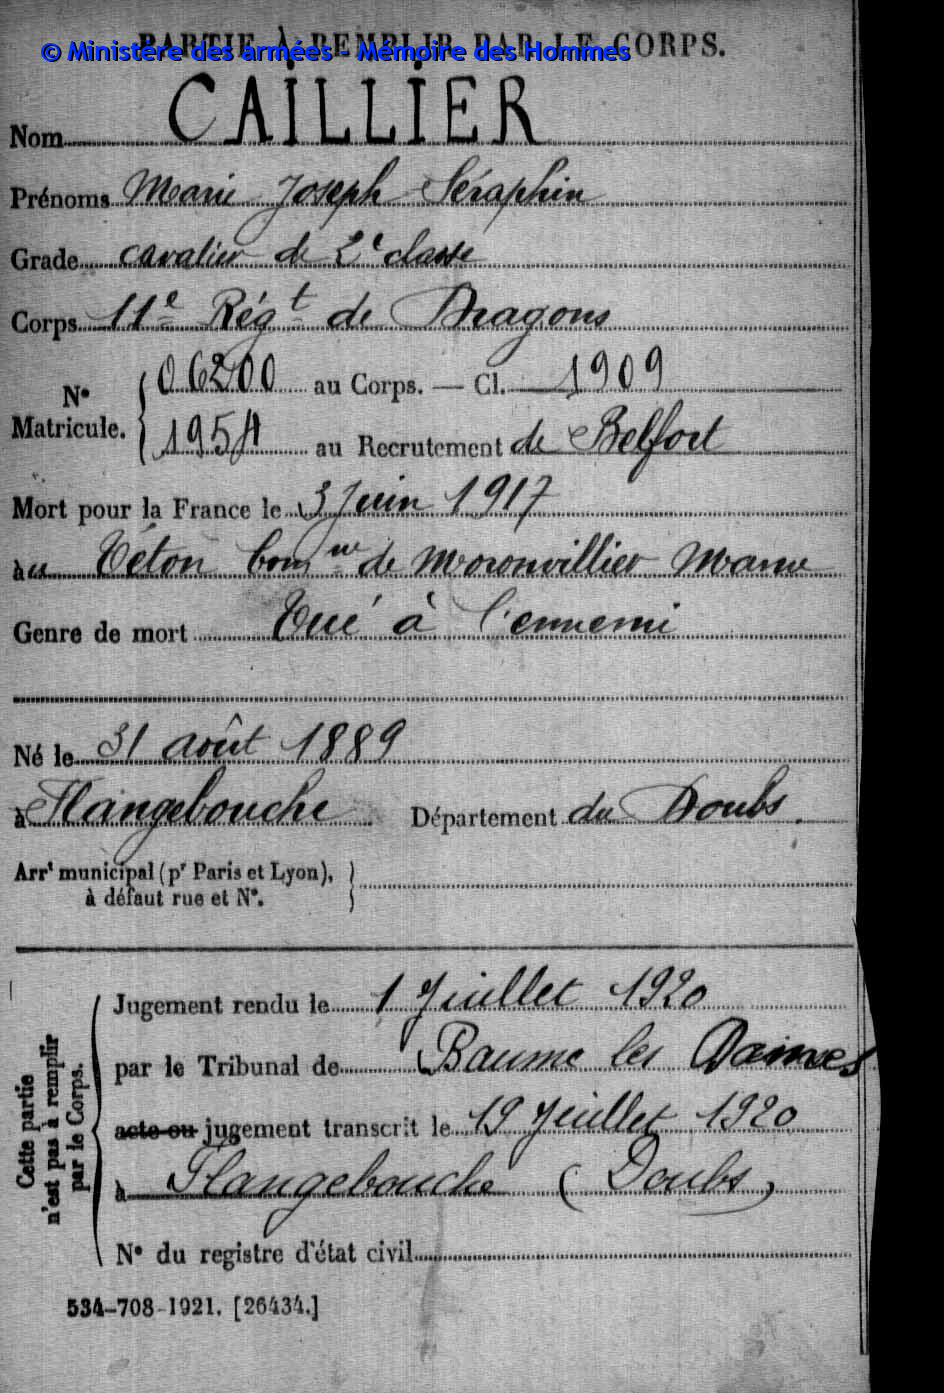 PARTIE À REMPLIR PAR LE CORPS.
© Ministère des armées - Mémoire des Hommes
Nom CAILLIER
Prénoms Marie Joseph Séraphin
Grade cavalier de 2e classe
Corps 11e Régt de Dragons
No Matricule. { 06200 au Corps. — Cl. 1909
1954 au Recrutement de Belfort
Mort pour la France le 3 Juin 1917
à au Téton Comne de Moronvillier Marne
Genre de mort Tué à l'ennemi
Né le 31 août 1889
à Flangebouche Département du Doubs.
Arrt municipal (pr Paris et Lyon), à défaut rue et No.
Cette partie n'est pas à remplir par le Corps.
Jugement rendu le 1 Juillet 1920
par le Tribunal de Baume les Dames
acte ou jugement transcrit le 19 Juillet 1920
à Flangebouche (Doubs)
No du registre d'état civil
534-708-1921. [26434.]